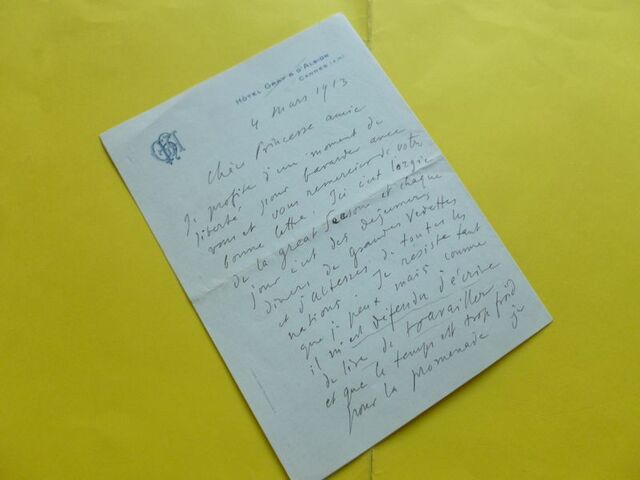 HÔTEL GRAY & D'ALBION
CANNES (A.M.)
4 mars 1913
Chère Princesse amie
Je profite d'un moment de
liberté pour bavarder avec
vous et vous remercier de votre
bonne lettre. Ici c'est l'orgie
de la great Season et chaque
jour c'est des déjeuners
diners de grandes vedettes
et d'altesses de toutes les
nations. Je resiste tant
que je peux mais comme
il m'est défendu d'écrire
de lire de travailler
et que le temps est trop froid
pour la promenade je